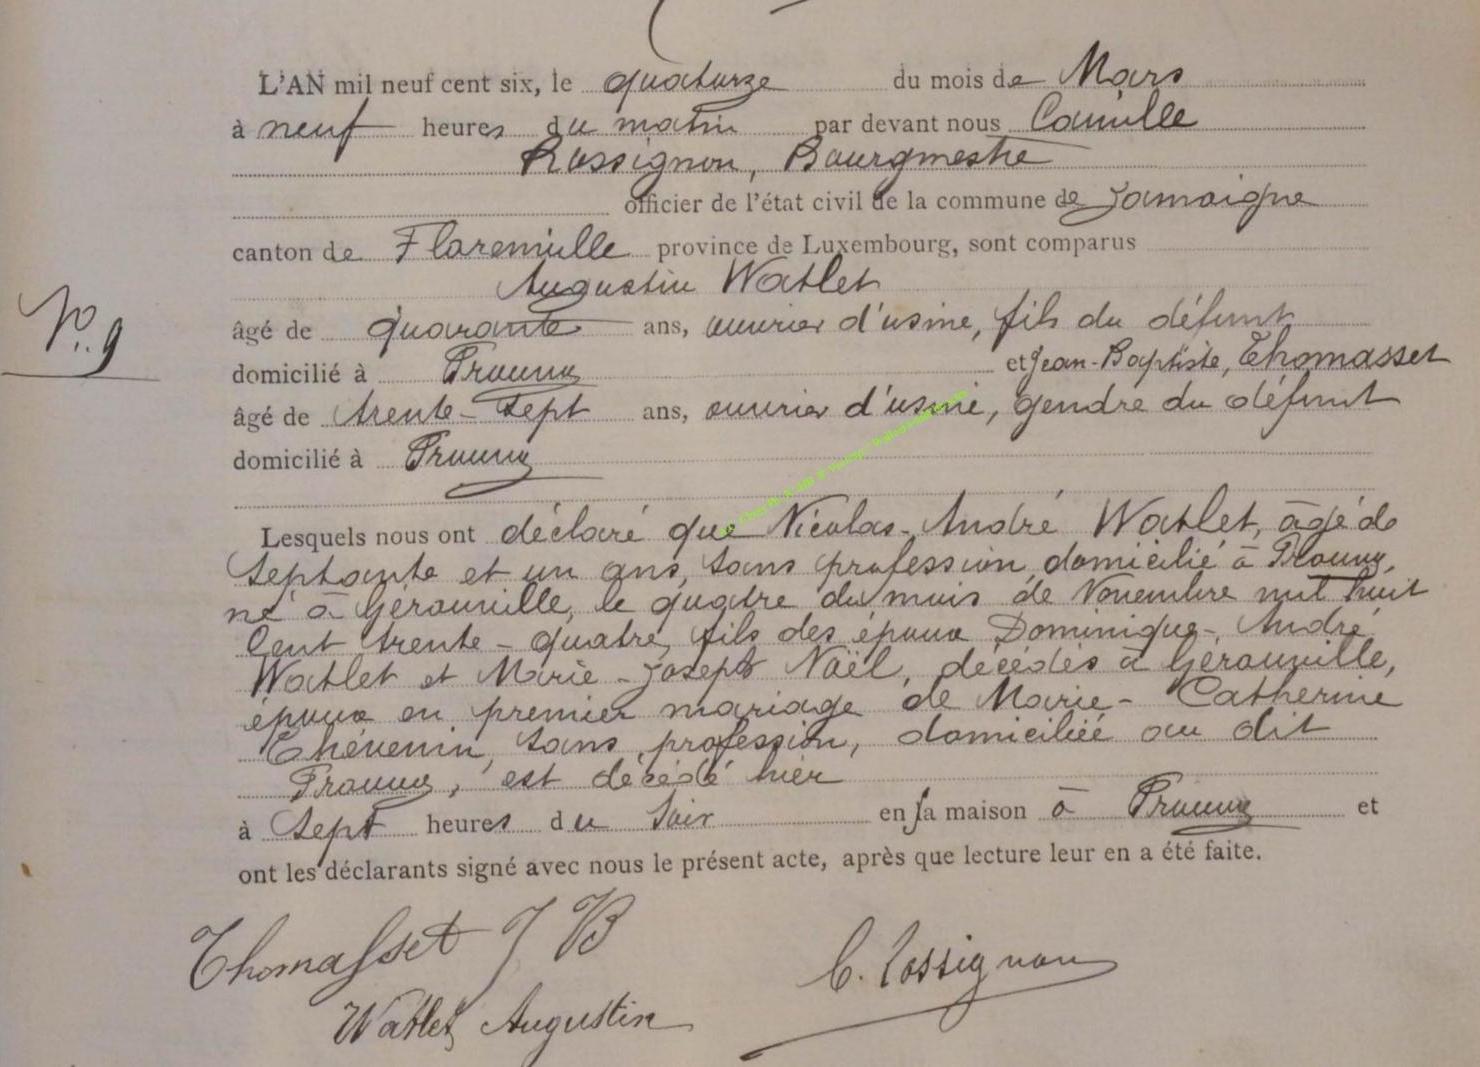 L'AN mil neuf cent six, le quatorze du mois de Mars
à neuf heures du matin par devant nous Camille
Rossignon, Bourgmestre
officier de l'état civil de la commune de Jamoigne
canton de Florenville province de Luxembourg, sont comparus
Augustin Watlet
N°. 9
âgé de quarante ans, ouvrier d'usine, fils du défunt
domicilié à Prouvy et Jean-Baptiste, Thomasset
âgé de trente-sept ans, ouvrier d'usine, gendre du défunt
domicilié à Prouvy
Lesquels nous ont déclaré que Nicolas-André Watlet, âgé de
septante et un ans, sans profession, domicilié à Prouvy,
né à Gérouville, le quatre du mois de Novembre mil huit
cent trente-quatre, fils des époux Dominique-André
Watlet et Marie-Joseph Noël, décédés à Gérouville,
époux en premier mariage de Marie-Catherine
Thévenin, sans profession, domiciliée au dit
Prouvy, est décédé hier
à sept heures du soir en sa maison à Prouvy et
ont les déclarants signé avec nous le présent acte, après que lecture leur en a été faite.
Thomasset J B
C. Rossignon
Watlet Augustin